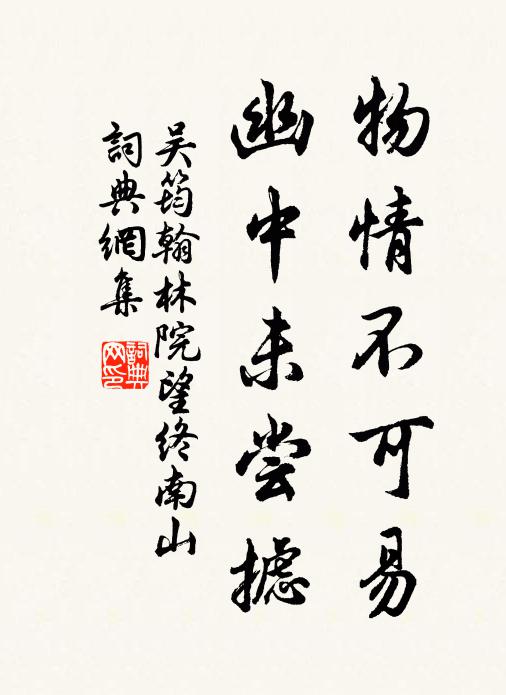 物情不可易
幽中未尝摅
吴筠翰林院望终南山
詞典網集
詞典网印